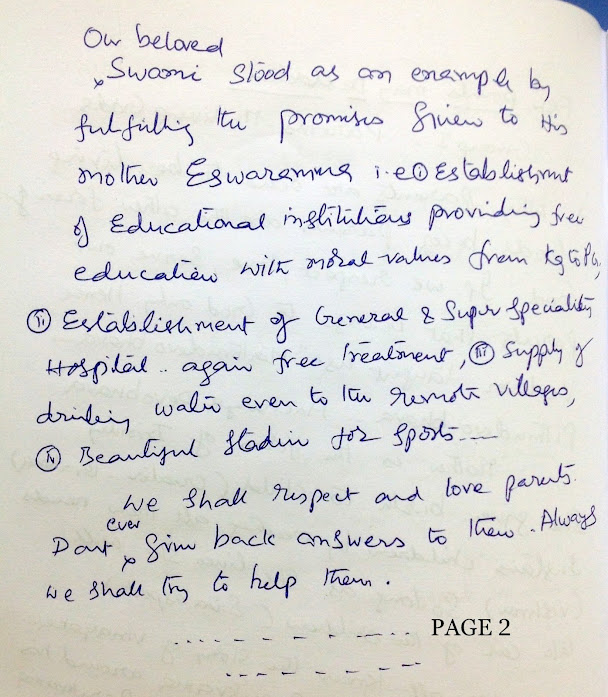 Our beloved
x Swami stood as an example by
fulfilling the promises given to His
mother Eswaramma i.e ⓘ Establishment
of Educational institutions providing free
education with moral values from Kg to PG,
ⓘⓘ Establishment of General & Super Speciality
Hospital.. again free Treatment, ⓘⓘⓘ Supply of
drinking water even to the remote villages,
ⓘⓥ Beautiful stadium for sports----
We shall respect and love parents.
ever
Dont x give back answers to them. Always
we shall try to help them.
PAGE 2